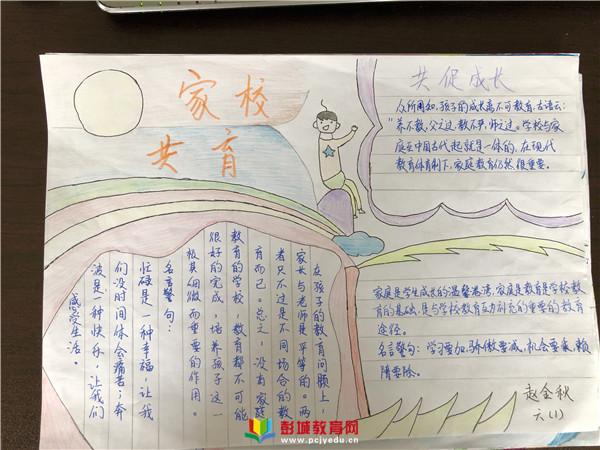 家校
共育
共促成长
众所周知，孩子的成长离不可教育，古语云：
“养不教，父之过，教不严，师之过。学校与家
庭在中国古代起就是一体的，在现代
教育体制下，家庭教育仍然很重要。
家庭是学生成长的温馨港湾，家庭是教育是学校教
育的基础，是与学校教育互为补充的重要的教育
途径。
名言警句：学习要加，骄傲要减，机会要乘，懒
惰要除。
赵金秋
六(1)
在孩子的教育问题上，
家长与老师是平等的。两
者只不过是不同场合的教
育而已。总之，没有家庭
教育的学校教育都不可能
很好的完成，培养孩子这一
极其细微而重要的作用。
名言警句：
忙碌是一种幸福，让我
们没时间体会痛苦；奔
波是一种快乐，让我们
感受生活。
彭城教育网
www.pcjyedu.cn